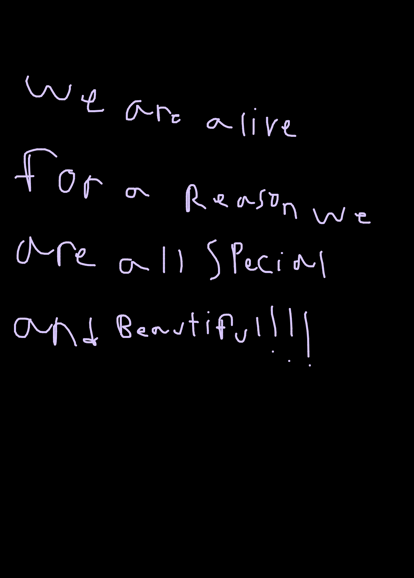 we are alive
for a Reason we
are all special
and Beautiful!!!